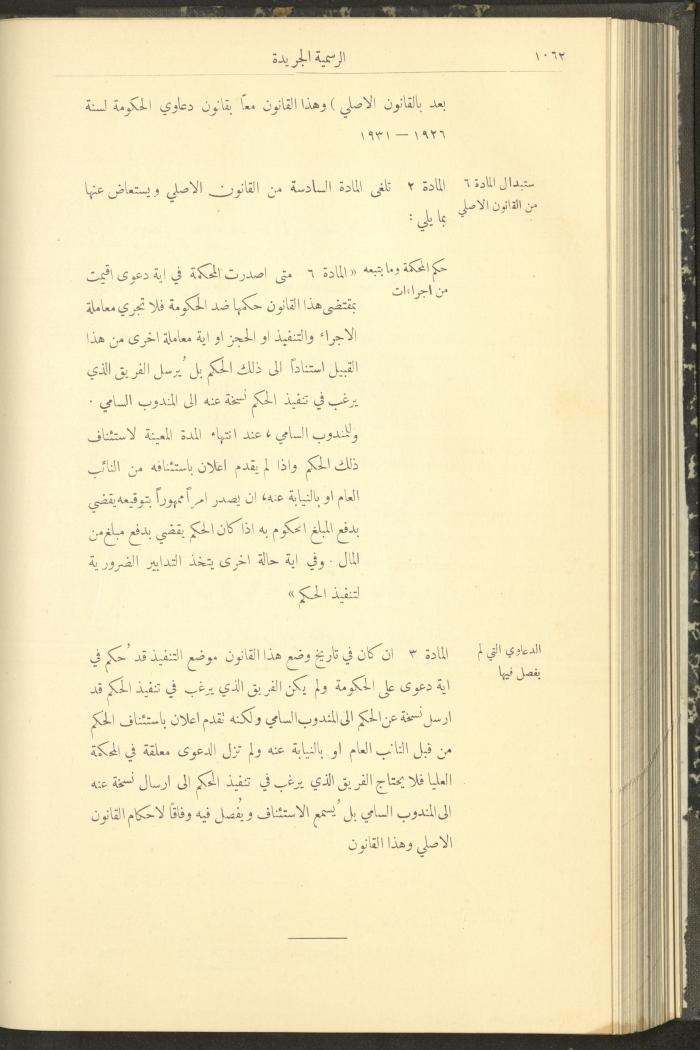 ١٠٦٢
الرسمية الجريدة
بعد بالقانون الاصلي ) وهذا القانون معاً بقانون دعاوي الحكومة لسنة
١٩٢٦ — ١٩٣١
ستبدال المادة ٦
من القانون الاصلي
المادة ٢ تلغى المادة السادسة من القانون الاصلي ويستعاض عنها
بما يلي :
حكم المحكمة وما يتبعه
من اجراءات
« المادة ٦ متى اصدرت المحكمة في اية دعوى اقيمت
بمقتضى هذا القانون حكمها ضد الحكومة فلا تجري معاملة
الاجراء والتنفيذ او الحجز او اية معاملة اخرى من هذا
القبيل استناداً الى ذلك الحكم بل يُرسل الفريق الذي
يرغب في تنفيذ الحكم نسخة عنه الى المندوب السامي .
وللمندوب السامي ، عند انتهاء المدة المعينة لاستئناف
ذلك الحكم واذا لم يقدم اعلان باستئنافه من النائب
العام او بالنيابة عنه، ان يصدر امراً ممهوراً بتوقيعه يقضي
بدفع المبلغ المحكوم به اذا كان الحكم يقضي بدفع مبلغ من
المال . وفي اية حالة اخرى يتخذ التدابير الضرورية
لتنفيذ الحكم »
الدعاوي التي لم
يفصل فيها
المادة ٣ ان كان في تاريخ وضع هذا القانون موضع التنفيذ قد حُكم في
اية دعوى على الحكومة ولم يكن الفريق الذي يرغب في تنفيذ الحكم قد
ارسل نسخة عن الحكم الى المندوب السامي ولكنه تقدم اعلان باستئناف الحكم
من قبل النائب العام او بالنيابة عنه ولم تزل الدعوى معلقة في المحكمة
العليا فلا يحتاج الفريق الذي يرغب في تنفيذ الحكم الى ارسال نسخة عنه
الى المندوب السامي بل يُسمع الاستئناف ويُفصل فيه وفاقاً لاحكام القانون
الاصلي وهذا القانون